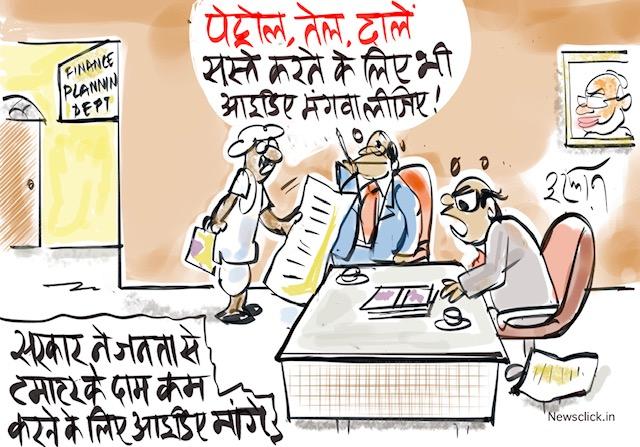 पेट्रोल, तेल, दालें
सस्ते करने के लिए भी
आइडिए मंगवा लीजिए!
FINANCE
PLANNIN
DEPT
सरकार ने जनता से
टमाटर के दाम कम
करने के लिए आइडिए मांगे!
Newsclick.in